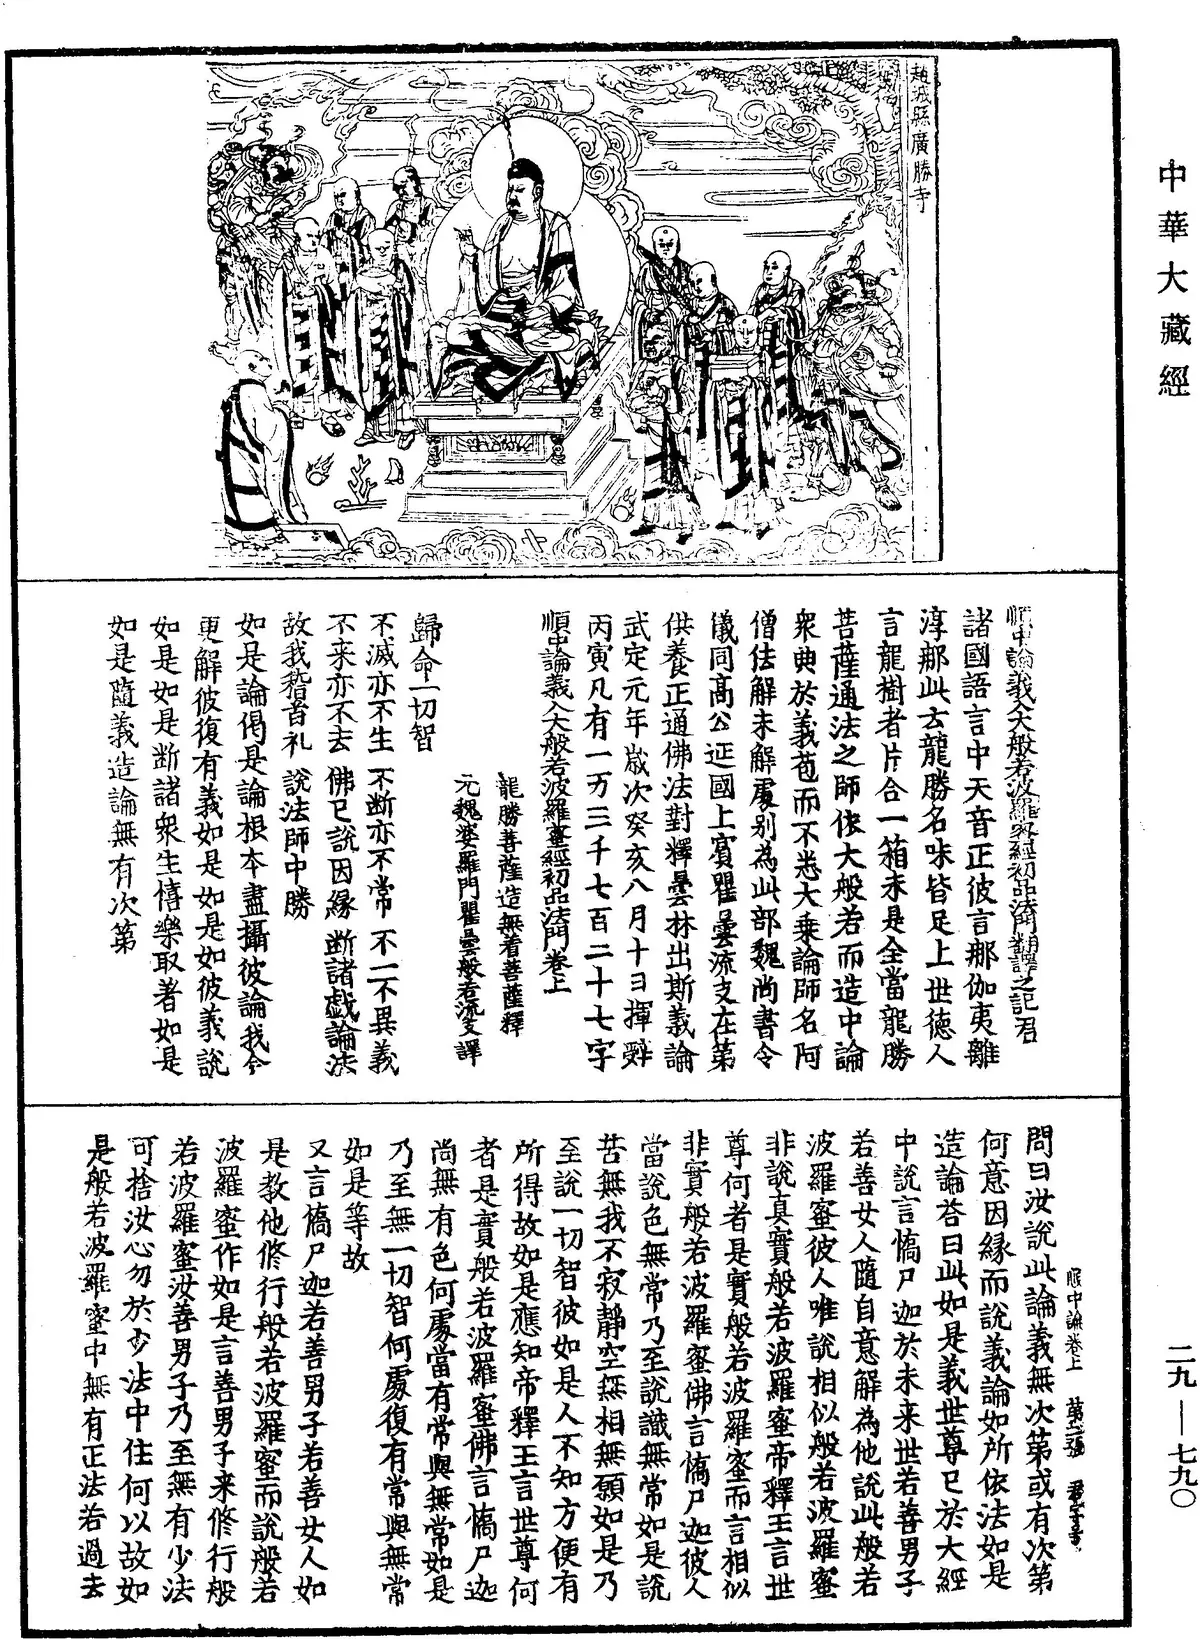 中華大藏經
趙城縣廣勝寺
順中論義入大般若波羅蜜經初品法門翻譯之記 君
諸國語言中天音正彼言那伽夷離
淳那此云龍勝名味皆足上世德人
言龍樹者片合一廂未是全當龍勝
菩薩通法之師依大般若而造中論
衆典於義苞而不悉大乘論師名阿
僧佉解未解處別為此部魏尚書令
儀同高公延國上賓瞿曇流支在第
供養正通佛法對釋曇林出斯義論
武定元年歲次癸亥八月十日揮辤
丙寅凡有一万三千七百二十七字
順中論義入大般若波羅蜜經初品法門卷上
龍勝菩薩造無著菩薩釋
元魏婆羅門瞿曇般若流支譯
歸命一切智
不滅亦不生 不断亦不常 不一不異義
不来亦不去 佛已說因緣 断諸戱論法
故我稽首礼 說法師中勝
如是論偈是論根本盡攝彼論我今
更解彼復有義如是如是如彼義說
如是如是断諸衆生憘樂取著如是
如是隨義造論無有次第
問曰汝說此論義無次第或有次第
何意因緣而說義論如所依法如是
造論荅曰此如是義世尊已於大經
中說言憍尸迦於未来世若善男子
若善女人隨自意解為他說此般若
波羅蜜彼人唯說相似般若波羅蜜
非說真實般若波羅蜜帝釋王言世
尊何者是實般若波羅蜜而言相似
非實般若波羅蜜佛言憍尸迦彼人
當說色無常乃至說識無常如是說
苦無我不寂靜空無相無願如是乃
至說一切智彼如是人不知方便有
所得故如是應知帝釋王言世尊何
者是實般若波羅蜜佛言憍尸迦
尚無有色何處當有常與無常如是
乃至無一切智何處復有常與無常
如是等故
又言憍尸迦若善男子若善女人如
是教他修行般若波羅蜜而說般若
波羅蜜作如是言善男子来修行般
若波羅蜜汝善男子乃至無有少法
可捨汝心勿於少法中住何以故如
是般若波羅蜜中無有正法若過去
順中論卷上 第二張 君字号
二九—七九〇